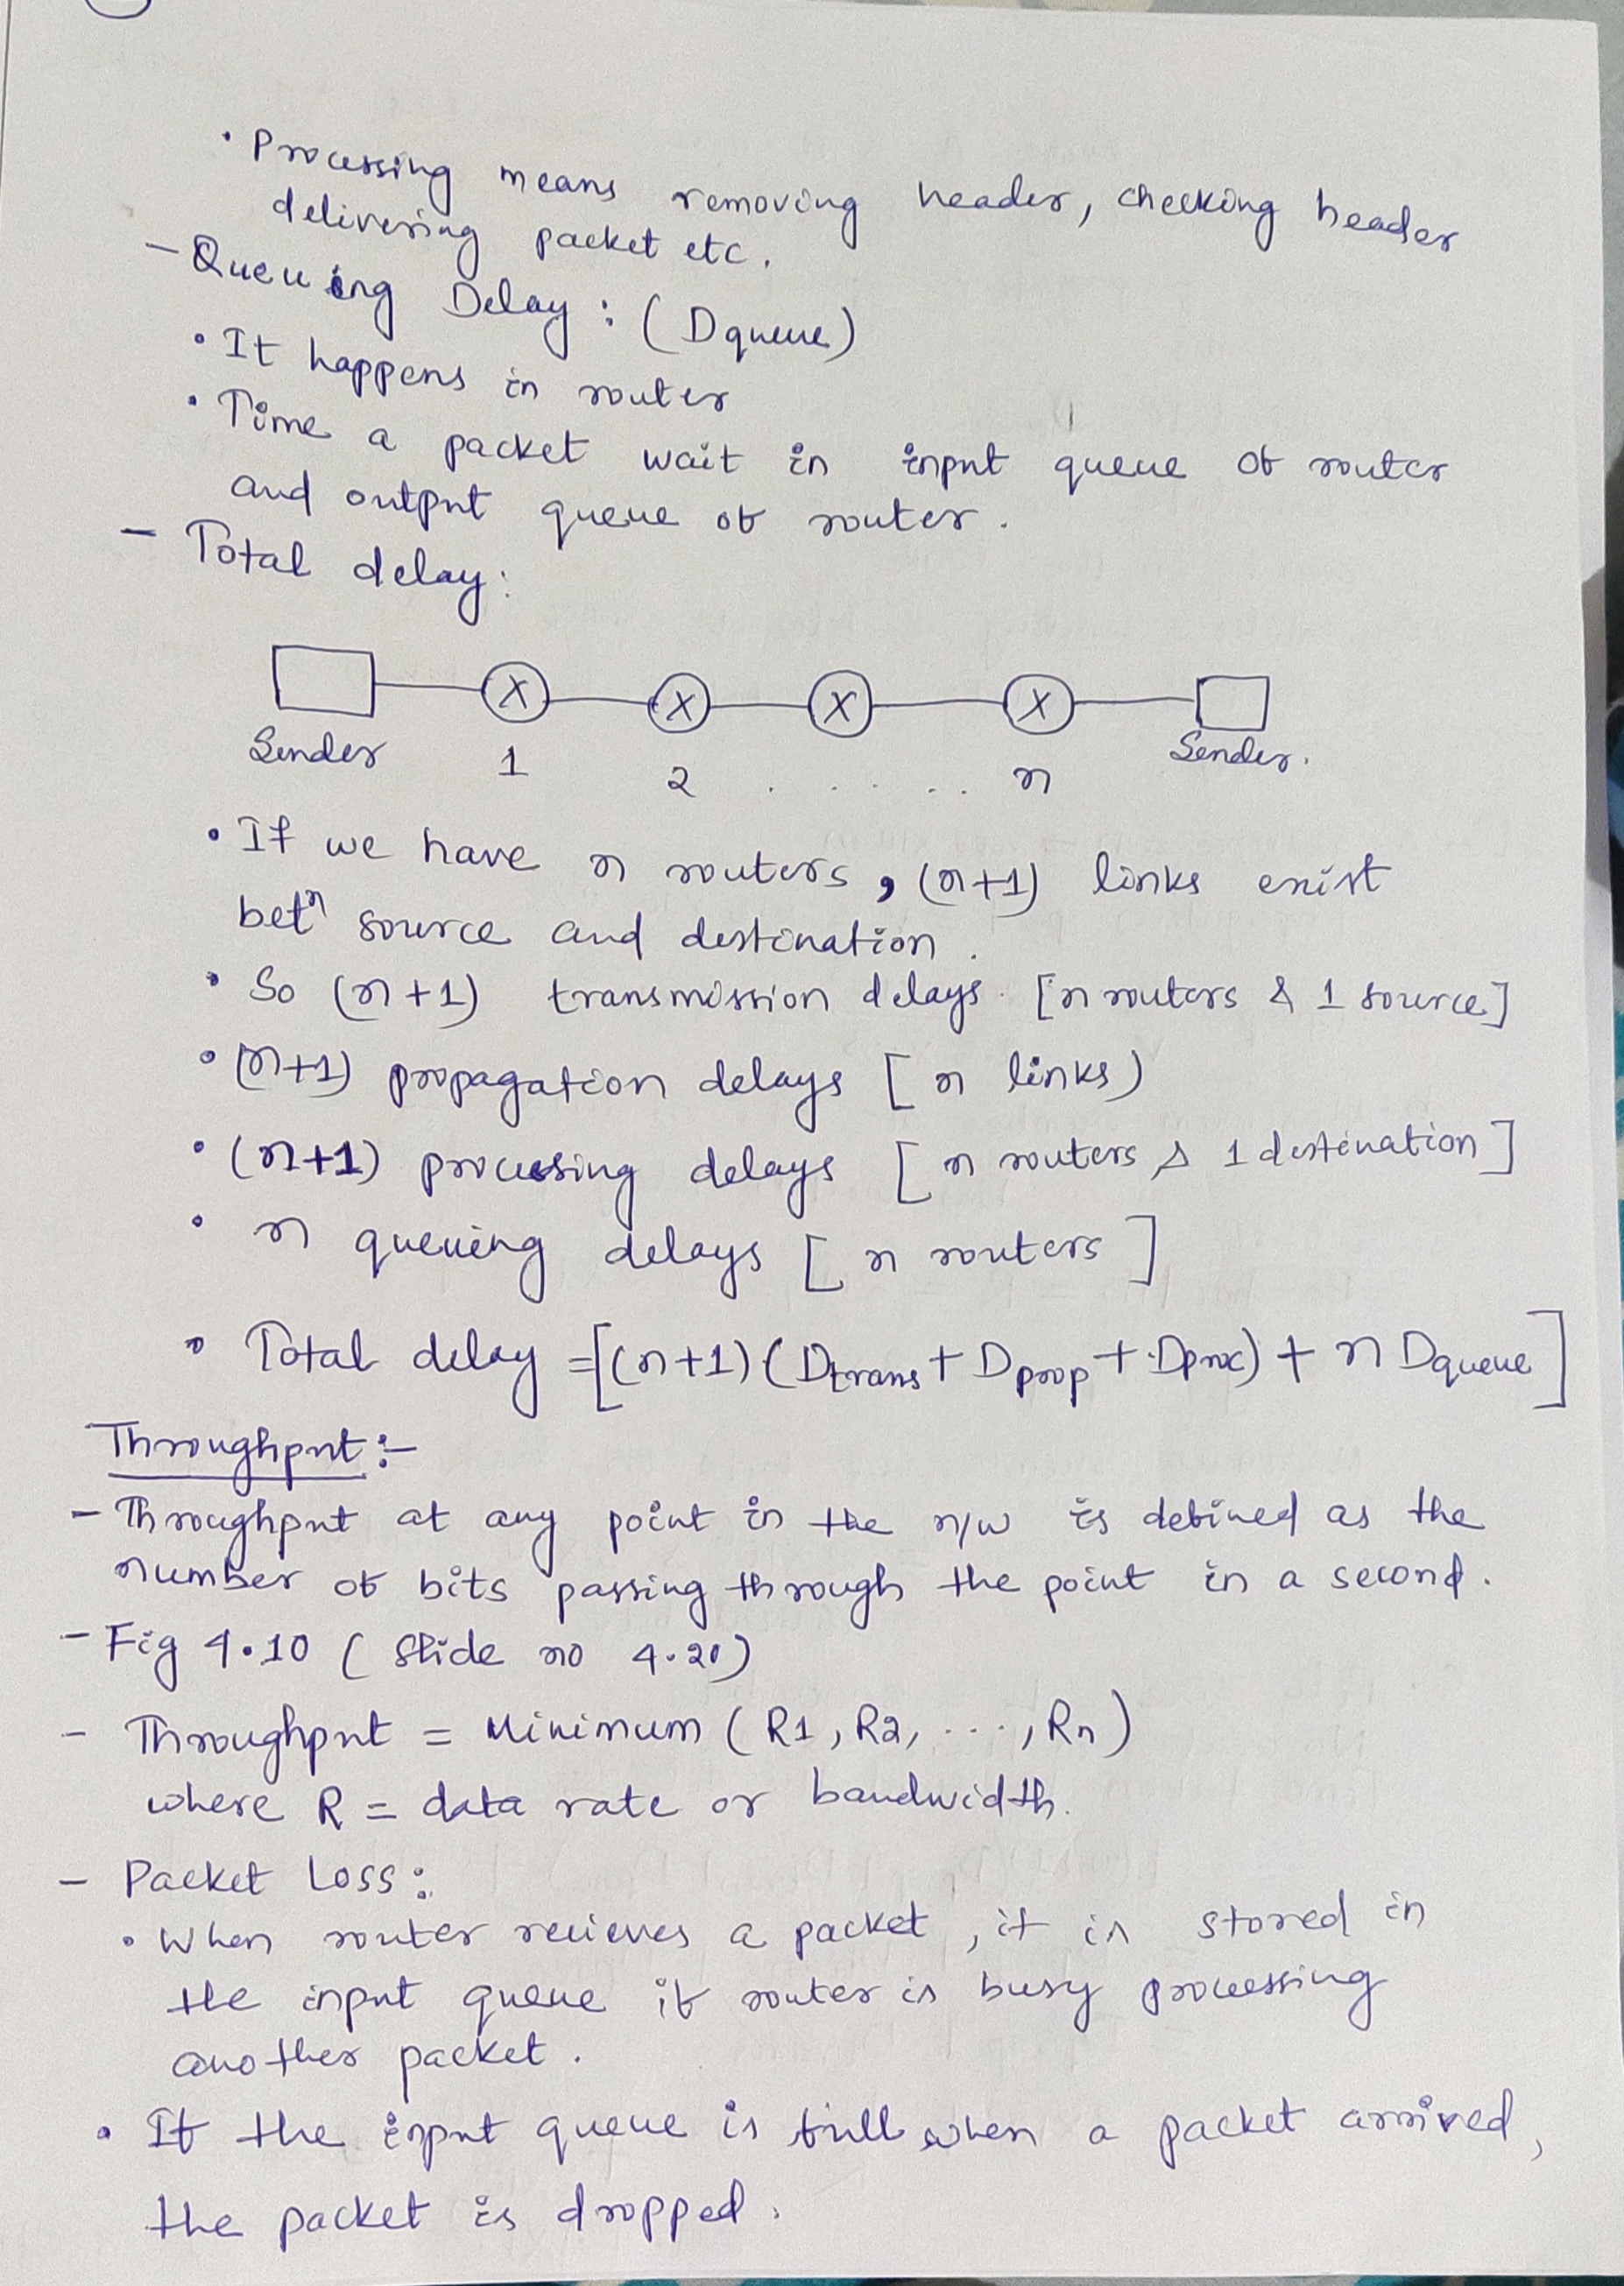 • Processing means removing header, checking header
delivering packet etc.
- Queuing Delay : (Dqueue)
• It happens in router
• Time a packet wait in input queue of router
and output queue of router.
- Total delay:
X X X X
Sender 1 2 . . . . . n Sender.
• If we have n routers, (n+1) links exist
betⁿ source and destination.
• So (n+1) transmission delays. [n routers & 1 source]
• (n+1) propagation delays [n links)
• (n+1) processing delays [n routers & 1 destination]
• n queuing delays [n routers]
• Total delay = [(n+1) (Dtrans + Dprop + Dproc) + n Dqueue]
Throughput :-
- Throughput at any point in the n/w is defined as the
number of bits passing through the point in a second.
- Fig 4.10 ( Slide no 4.20)
- Throughput = Minimum ( R1, R2, ..., Rn)
where R = data rate or bandwidth.
- Packet Loss :
• When router recieves a packet, it is stored in
the input queue if router is busy processing
another packet.
• If the input queue is full when a packet arrived,
the packet is dropped.